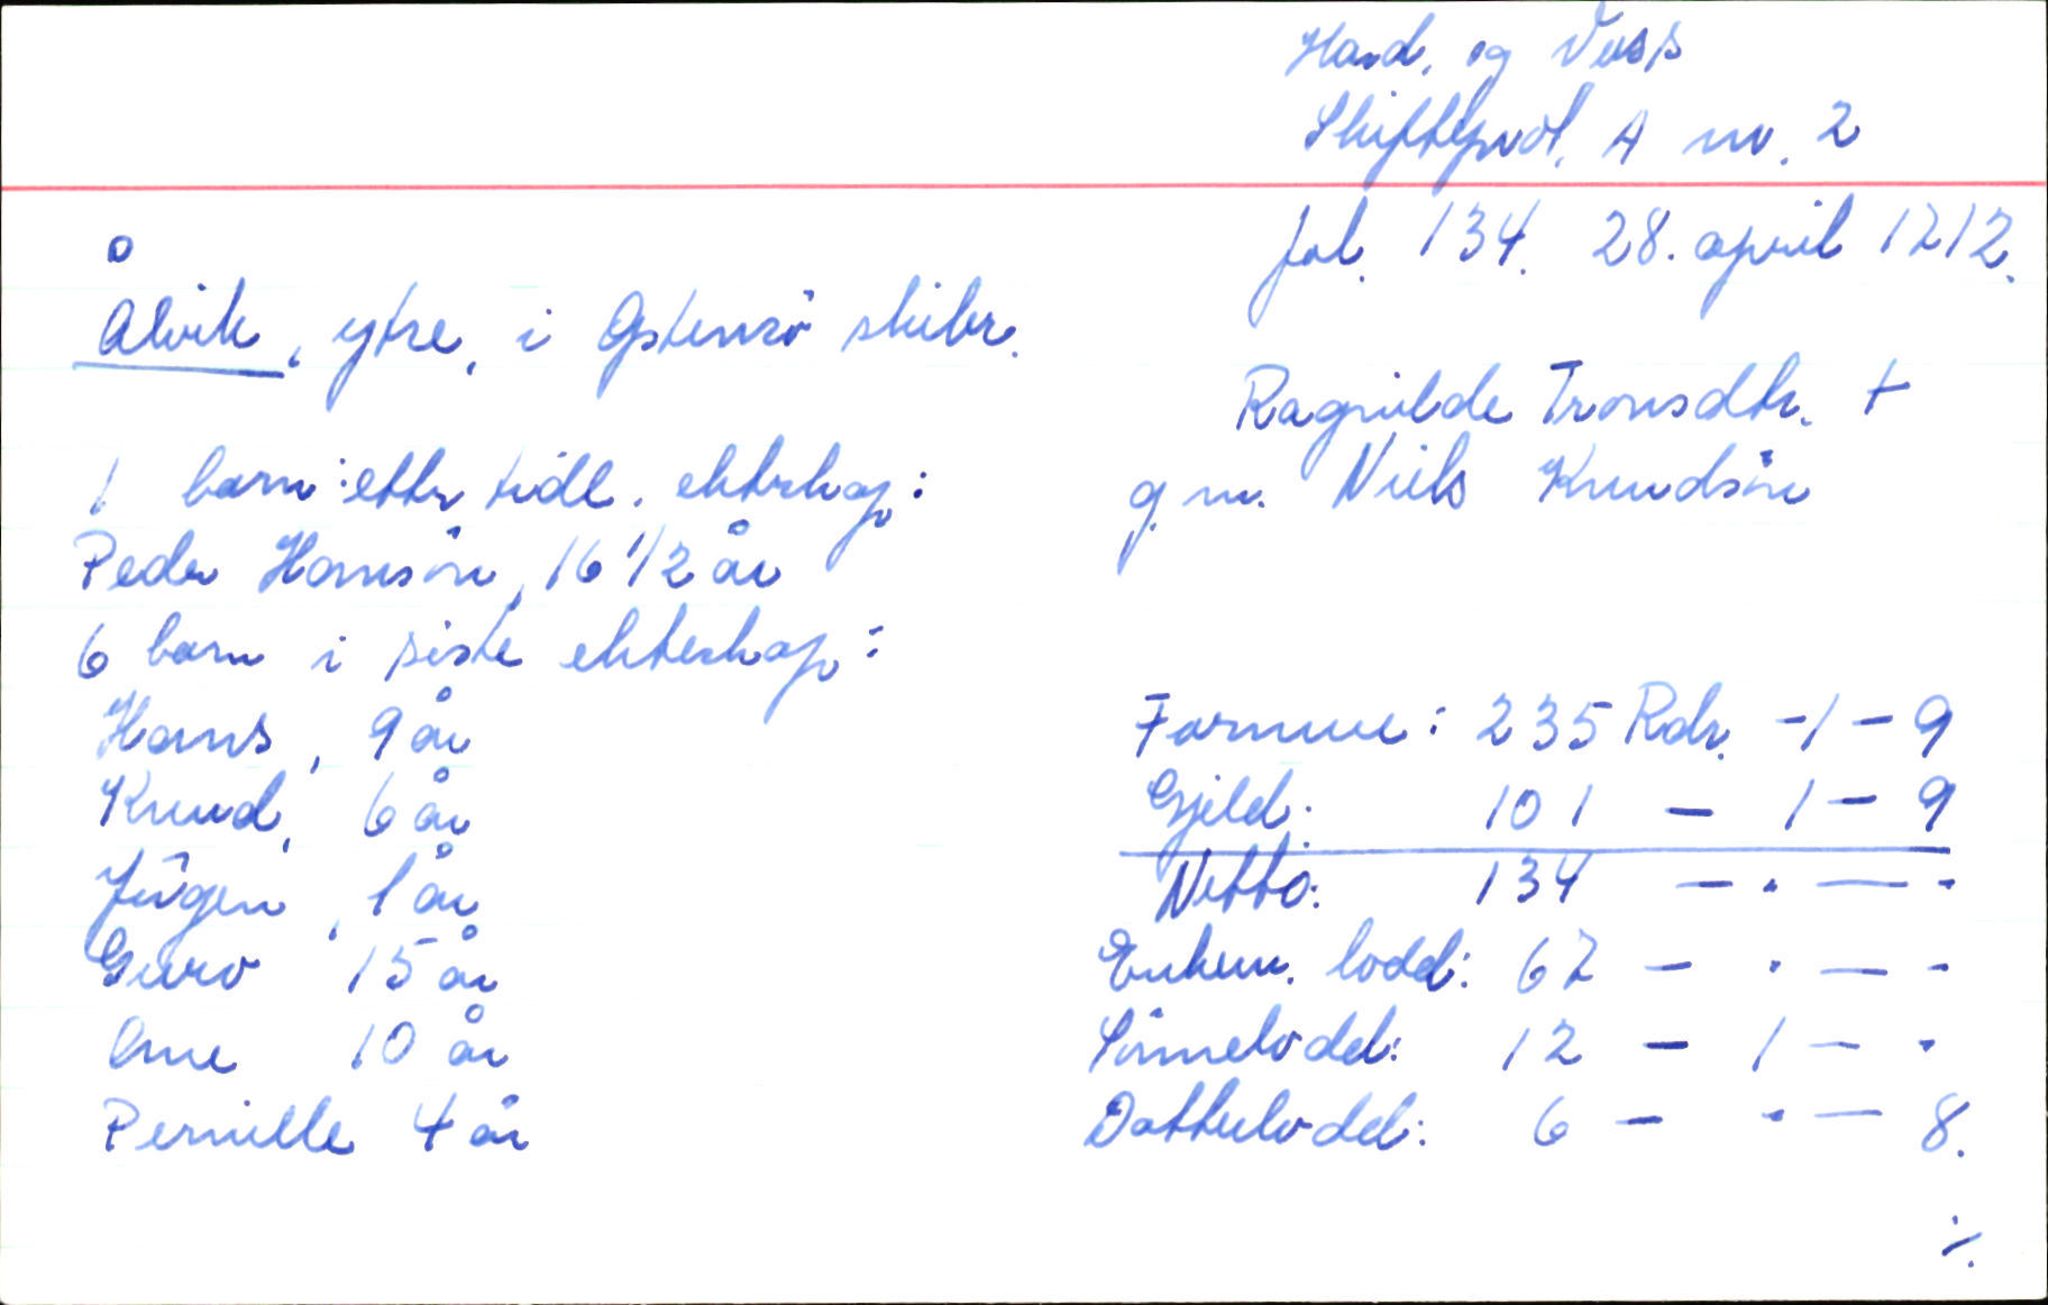 Hard. og Voss
Skifteprot. A nr. 2
fol. 134. 28. april 1712.
Ålvik, ytre, i Østensö skibr.
Ragnilde Tronsdtr. +
g.m. Niels Knudsön
1 barn etter tidl. ekteskap:
Peder Hansön, 16 1/2 år
6 barn i siste ekteskap:
Hans, 9 år
Knud, 6 år
Jörgen, 1 år
Guro 15 år
Ane 10 år
Pernille 4 år
Formue: 235 Rdr. - 1 - 9
Gjeld: 101 - 1 - 9
Netto: 134 - . - .
Enkem. lodd: 67 - . - .
Sönnelodd: 12 - 1 - .
Datterlodd: 6 - . - 8.
./.